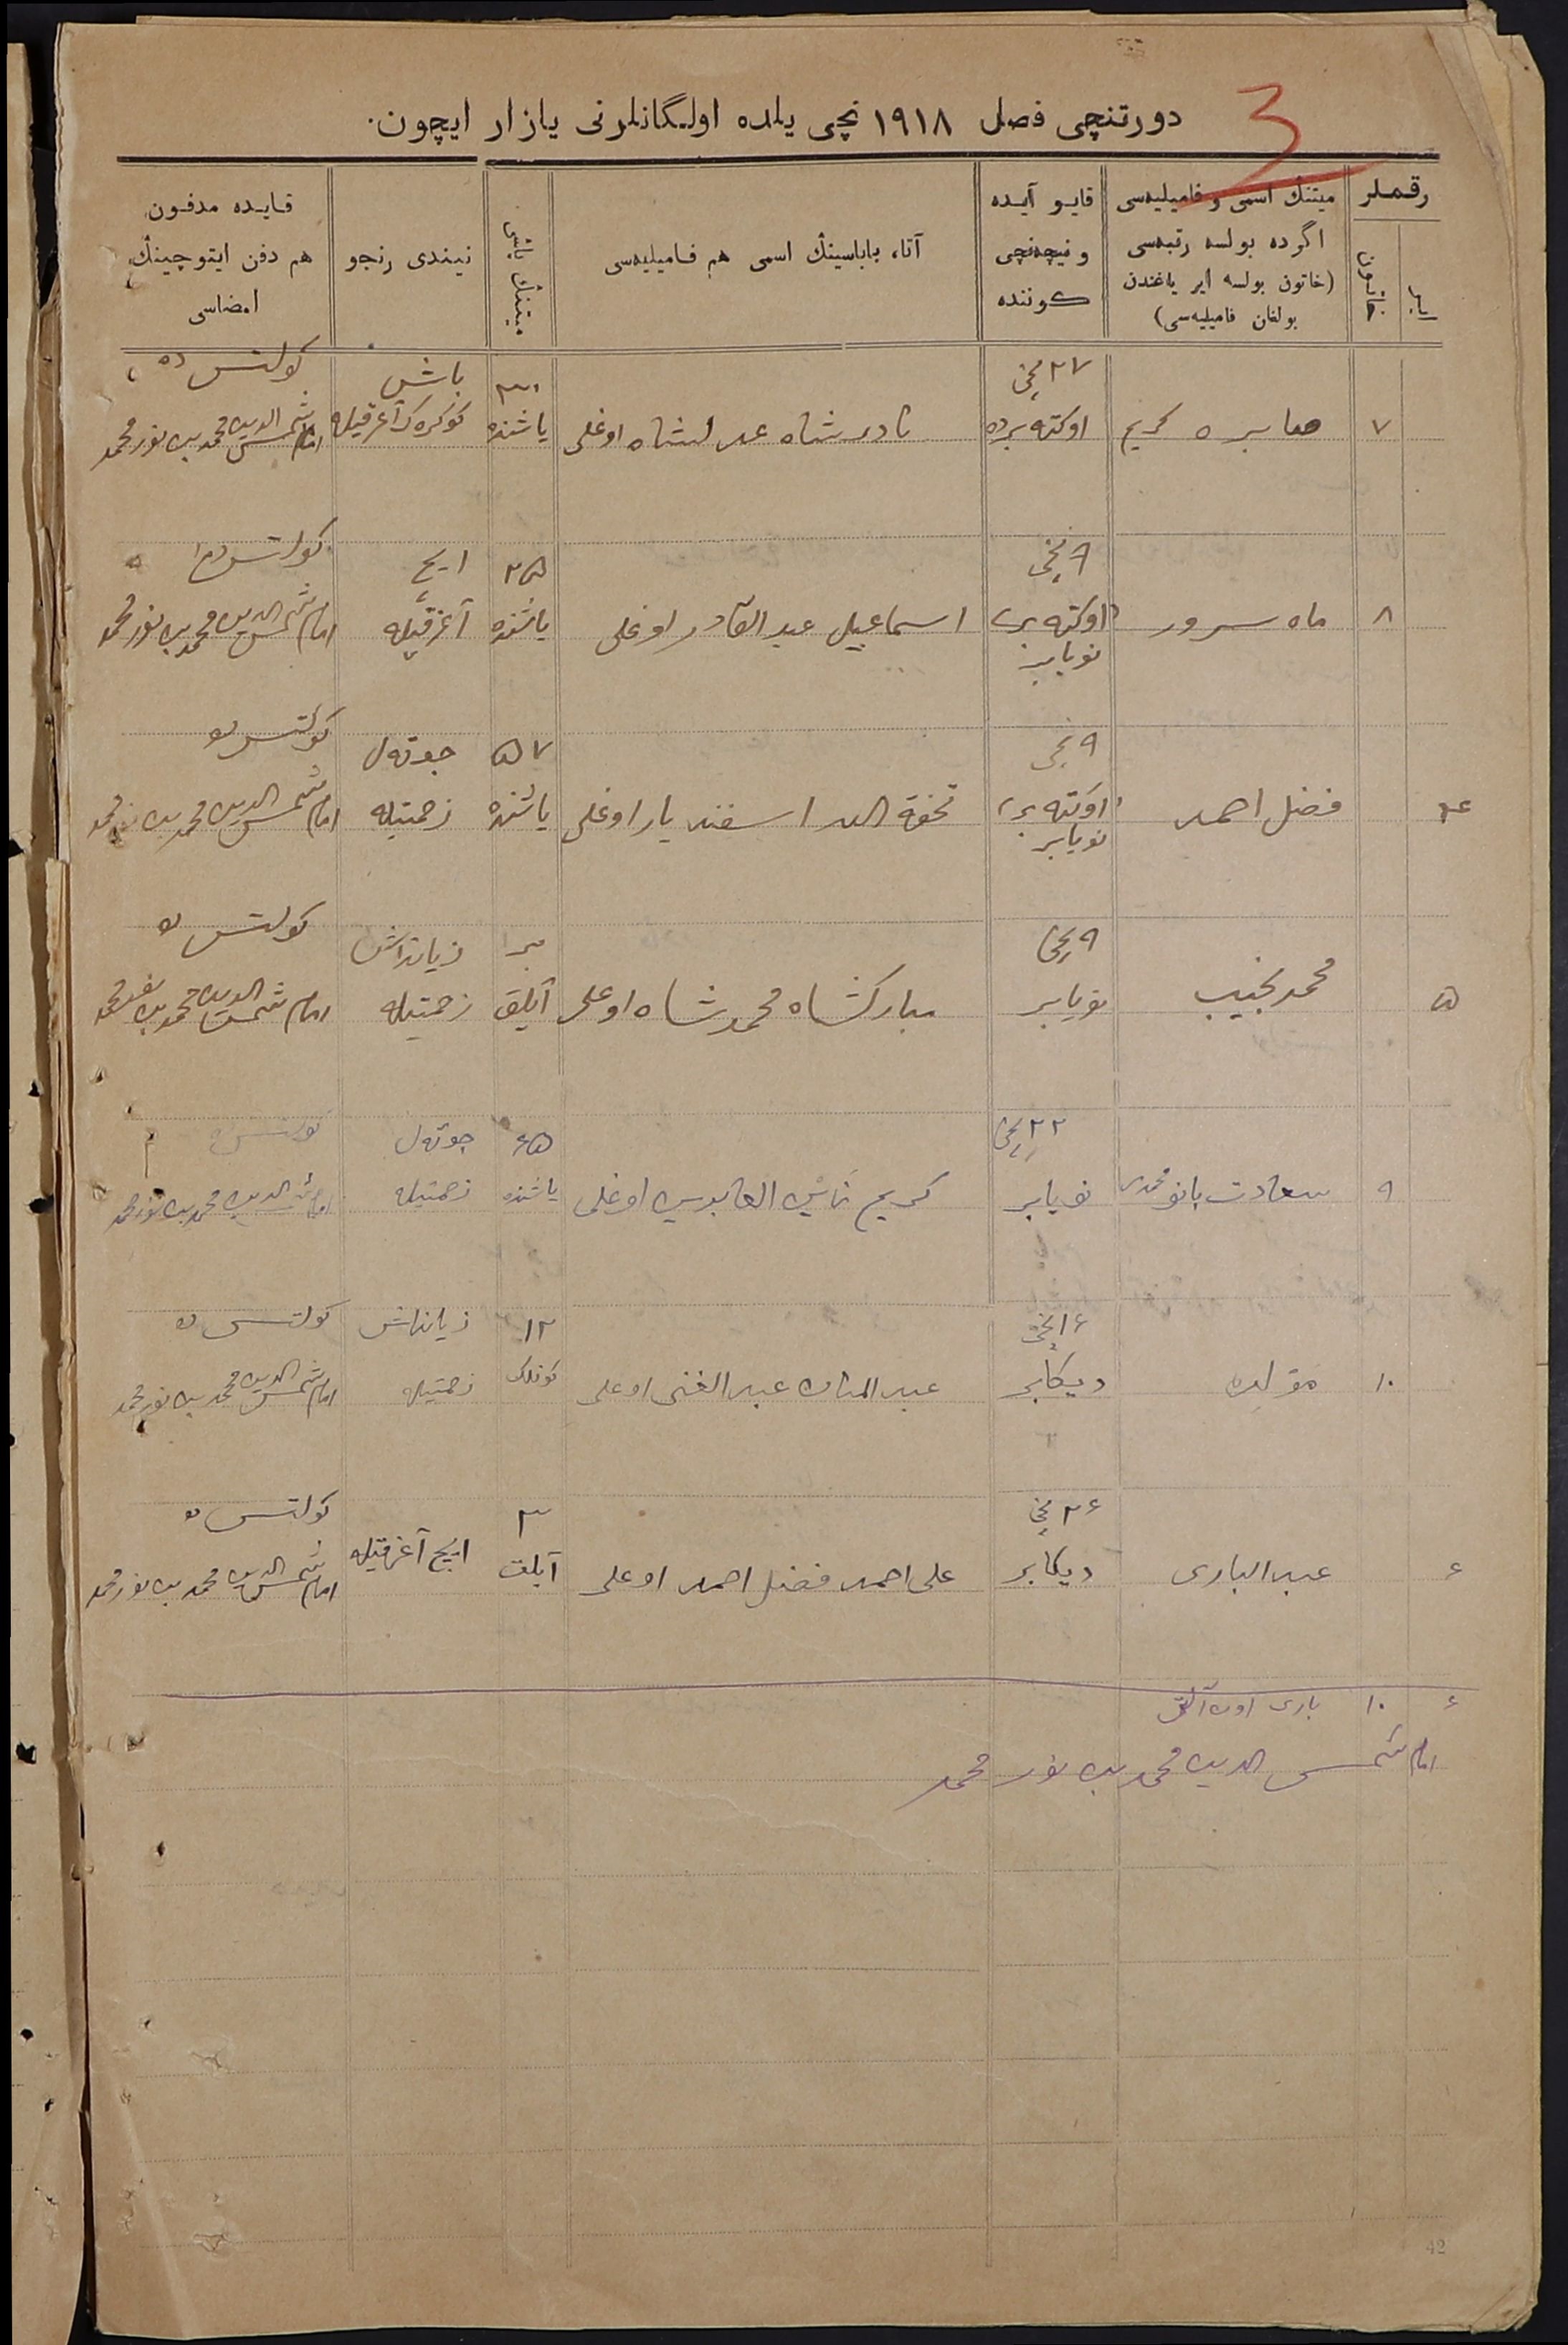 3
دورتنچی فصل ١٩١٨ نچی یلده اولگانلرنی یازار ایچون.
رقملر
ایرلر
خاتونلر
میتنڭ اسمی و فامیلیه‌سی
اگرده بولسه رتبه‌سی
(خاتون بولسه ایر یاغندن
بولغان فامیلیه‌سی)
قایو آیده
و نیچه‌نچی
کوننده
آتا، باباسینڭ اسمی هم فامیلیه‌سی
میتنڭ یاشی
نیندی رنجو
قایده مدفون
هم دفن ایتوچینڭ
امضاسی
٧
صابره کریم
٢٧ نچی
اوکته‌برده
نادرشاه عدلشاه اوغلی
یاشنده
باش
کوکره‌ک آغرقیله
کولتس ده
امام شمس الدین محمد بن نورمحمد
٨
ماه سرور
٩ نچی
(اوکته‌بر)
نویابر
اسماعیل عبدالقادر اوغلی
٢۵
یاشنده
ایچ
آغرقیله
کولتس ده
امام شمس الدین محمد بن نورمحمد
۴
فضل احمد
٩ نچی
(اوکته‌بر)
نویابر
تحفة الله اسفندیار اوغلی
۵٧
یاشنده
جوته‌ل
زحمتیله
کولتس ده
امام شمس الدین محمد بن نورمحمد
۵
محمد نجیب
٩ نچی
نویابر
مبارکشاه محمدشاه اوغلی
بر
آیلق
زیانداش
زحمتیله
کولتس ده
امام شمس الدین محمد بن نورمحمد
٩
سعادت بانو محمدی
٢٢ نچی
نویابر
کریم زین العابدین اوغلی
۶۵
یاشنده
جوته‌ل
زحمتیله
کولتس ده
امام شمس الدین محمد بن نورمحمد
١٠
١۶ نچی
دیکابر
عبدالمنان عبدالغنی اوغلی
١٢
کونلک
زیانداش
زحمتیله
کولتس ده
امام شمس الدین محمد بن نورمحمد
۶
عبدالباری
٢۶ نچی
دیکابر
علی احمد فضل احمد اوغلی
٣
آیلق
ایچ آغرقیله
کولتس ده
امام شمس الدین محمد بن نورمحمد
۶ ١٠ باری اون آلتی
امام شمس الدین محمد بن نور محمد
42